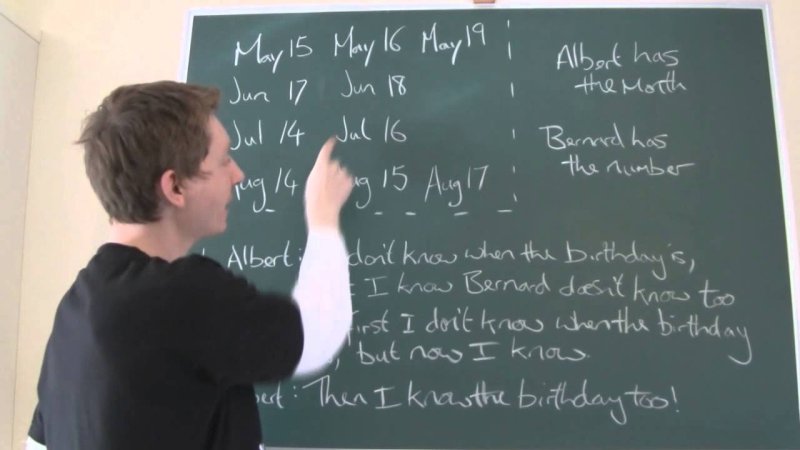 May 15 May 16 May 19
Jun 17 Jun 18
Jul 14 Jul 16
Aug 14 Aug 15 Aug 17
Albert has
the Month
Bernard has
the number
Albert: don't know when the birthday is,
I know Bernard doesn't know too
first I don't know when the birthday
, but now I know.
Then I know the birthday too!